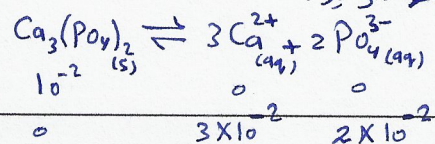 Ca₃(PO₄)₂ (s) ⇌ 3Ca²⁺ (aq) + 2PO₄³⁻ (aq)
10⁻² 0 0
0 3×10⁻² 2×10⁻²